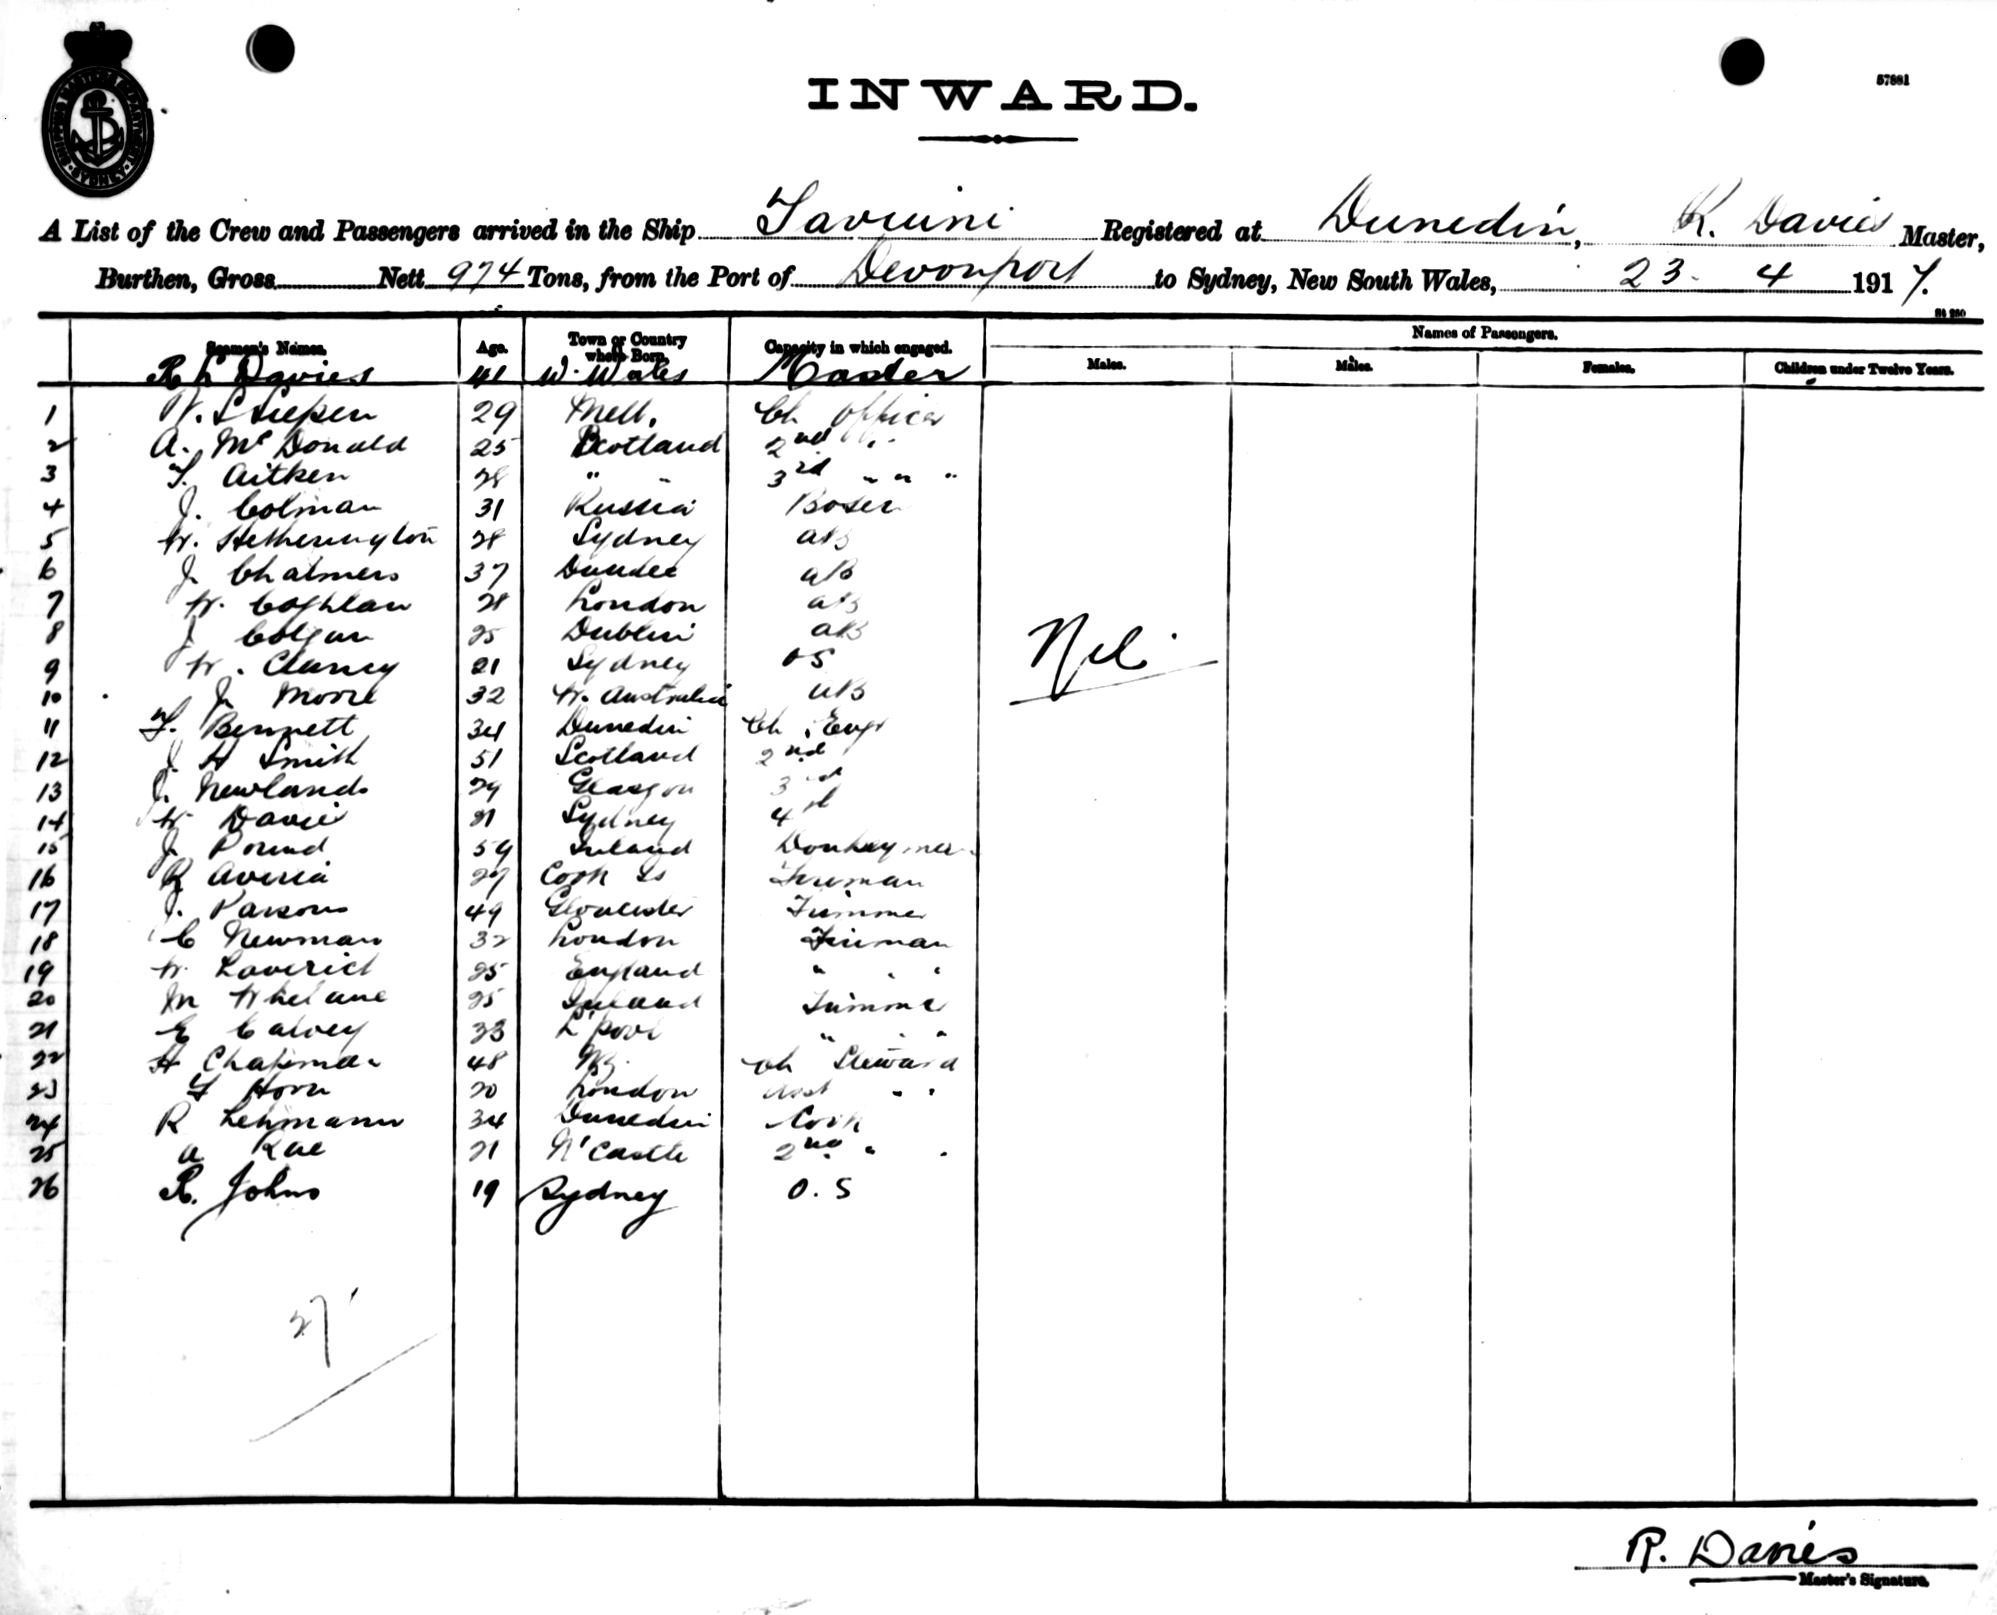 SHIPPING MASTER'S DEPARTMENT SYDNEY
57881
INWARD.
A List of the Crew and Passengers arrived in the Ship Taviuni Registered at Dunedin, R. Davies Master,
Burthen, Gross Nett 974 Tons, from the Port of Devonport to Sydney, New South Wales, 23. 4 1917.
Seamen's Names. Age. Town or Country where Born. Capacity in which engaged. Names of Passengers.
Males. Males. Females. Children under Twelve Years.
R L Davies 41 W. Wales Master
1 29 Melb. Ch Officer
2 A. McDonald 25 Scotland 2nd "
3 T. Aitken 28 " " 3rd " " "
4 J. Colman 31 Russia Bosen
5 W. Hetherington 28 Sydney AB
6 J. Chalmers 37 Dundee AB
7 W. Coghlan 28 London AB
8 J Colgan 25 Dublin AB
9 W. Clancy 21 Sydney OS
10 J. Moore 32 W. Australia AB
11 F. Bennett 34 Dunedin Ch. Engr
12 J. H Smith 51 Scotland 2nd
13 J. Newlands 29 Glasgow 3rd
14 W Davies 21 Sydney 4th
15 J. Pound 59 Ireland Donkeyman
16 R Averia 27 Cook Is Fireman
17 J. Parsons 49 Gloucester Trimmer
18 C Newman 32 London Fireman
19 W. Laverick 25 England " " "
20 M Whelane 25 Ireland Trimmer
21 E Calvey 33 L'pool " " "
22 H Chapman 48 NZ. Ch Steward
23 Horn 20 London Asst " "
24 R Lehmann 34 Dunedin Cook
25 A Rae 21 N'Castle 2nd " "
26 R. Johns 19 Sydney O.S
Nil
27
R. Davies
Master's Signature.